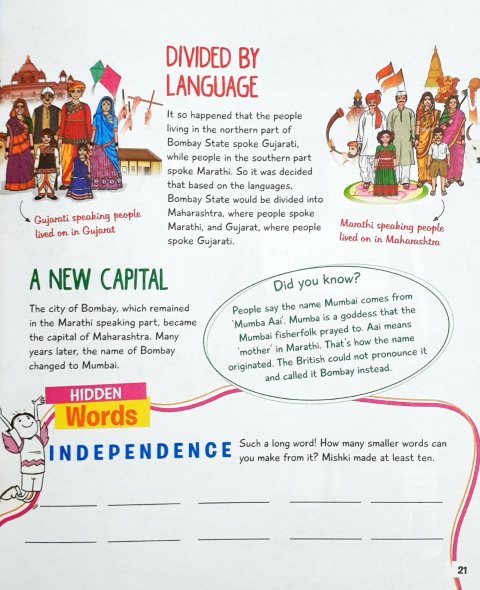 DIVIDED BY
LANGUAGE
It so happened that the people
living in the northern part of
Bombay State spoke Gujarati,
while people in the southern part
spoke Marathi. So it was decided
that based on the languages,
Bombay State would be divided into
Maharashtra, where people spoke
Marathi, and Gujarat, where people
spoke Gujarati.
Gujarati speaking people
lived on in Gujarat
Marathi speaking people
lived on in Maharashtra
A NEW CAPITAL
The city of Bombay, which remained
in the Marathi speaking part, became
the capital of Maharashtra. Many
years later, the name of Bombay
changed to Mumbai.
Did you know?
People say the name Mumbai comes from
'Mumba Aai'. Mumba is a goddess that the
Mumbai fisherfolk prayed to. Aai means
'mother' in Marathi. That's how the name
originated. The British could not pronounce it
and called it Bombay instead.
HIDDEN
Words
INDEPENDENCE
Such a long word! How many smaller words can
you make from it? Mishki made at least ten.
21